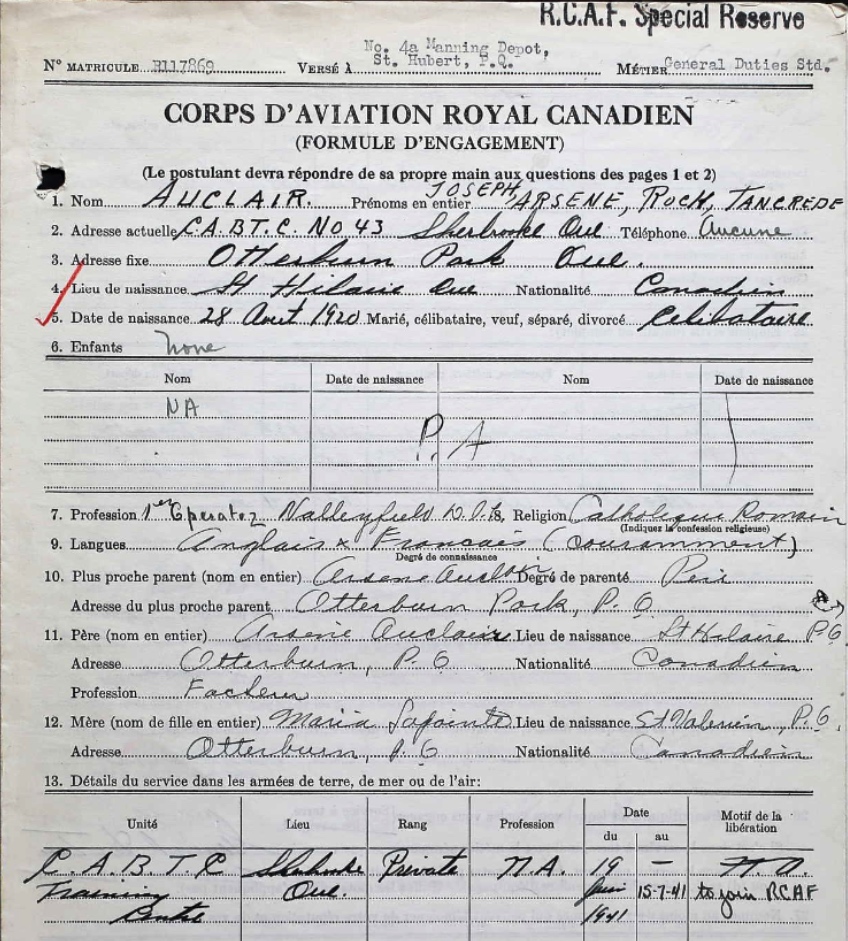 R.C.A.F. Special Reserve
No. 4a Manning Depot,
Nº MATRICULE R117869 VERSÉ À St. Hubert, P.Q. MÉTIER General Duties Std.
CORPS D'AVIATION ROYAL CANADIEN
(FORMULE D'ENGAGEMENT)
(Le postulant devra répondre de sa propre main aux questions des pages 1 et 2)
1. Nom AUCLAIR. Prénoms en entier JOSEPH, ARSENE, ROCH, TANCREDE
2. Adresse actuelle C.A.B.T.C. No 43 Sherbrooke Que Téléphone Aucune
3. Adresse fixe Otterburn Park Que.
4. Lieu de naissance St Hilaire Que Nationalité Canadien
5. Date de naissance 28 Aout 1920 Marié, célibataire, veuf, séparé, divorcé Celibataire
6. Enfants None
Nom Date de naissance Nom Date de naissance
NA
P.A
7. Profession 1er Operator Valleyfield Religion Catholique Romain
(Indiquez la confession religieuse)
9. Langues Anglais & Francais (couramment)
Degré de connaissance
10. Plus proche parent (nom en entier) Arsene Auclair Degré de parenté Père
Adresse du plus proche parent Otterburn Park, P.Q
11. Père (nom en entier) Arsene Auclair Lieu de naissance St Hilaire P.Q.
Adresse Otterburn, P.Q Nationalité Canadien
Profession Facteur
12. Mère (nom de fille en entier) Maria Lapointe Lieu de naissance St Valerien, P.Q.
Adresse Otterburn, P.Q Nationalité Canadien
13. Détails du service dans les armées de terre, de mer ou de l'air:
Unité Lieu Rang Profession Date Motif de la libération
du au
C.A.B.T.C Sherbrooke Private N.A. 19 —
Training Que. Juin 15-7-41 to join RCAF
Centre 1941